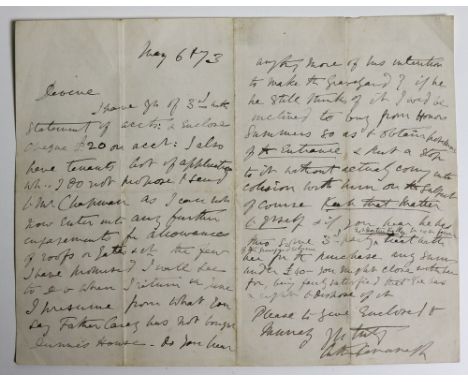 May 6th 73
Devine
I have yrs of 3rd with
Statement of accts: & Enclose
Cheque £20 on acct: I also
have tenants list of application
wh.. I do not propose to send
to Mr Chapman as I can not
now Enter into any further
engagements for allowances
of roofs or gates
I have promised I will see
to it when I return in June
I presume from what you
say Father Carey has not bought
Dunnes House - Do you hear
anything more of his intention
to make the Graveyard? if he
still thinks of it I wd be
inclined to buy from Honor
Summers so as to obtain possession
of the Entrance & put a stop
to it without actually coming into
collision with him on the subject
of course keep that matter
to yrself & if you hear he has
this
her for the purchase any sum
under £40 you might close with
for, being fully satisfied that she has
a right to dispose of it
Please to give Enclosed to
Murray yrs truly
Kavanagh